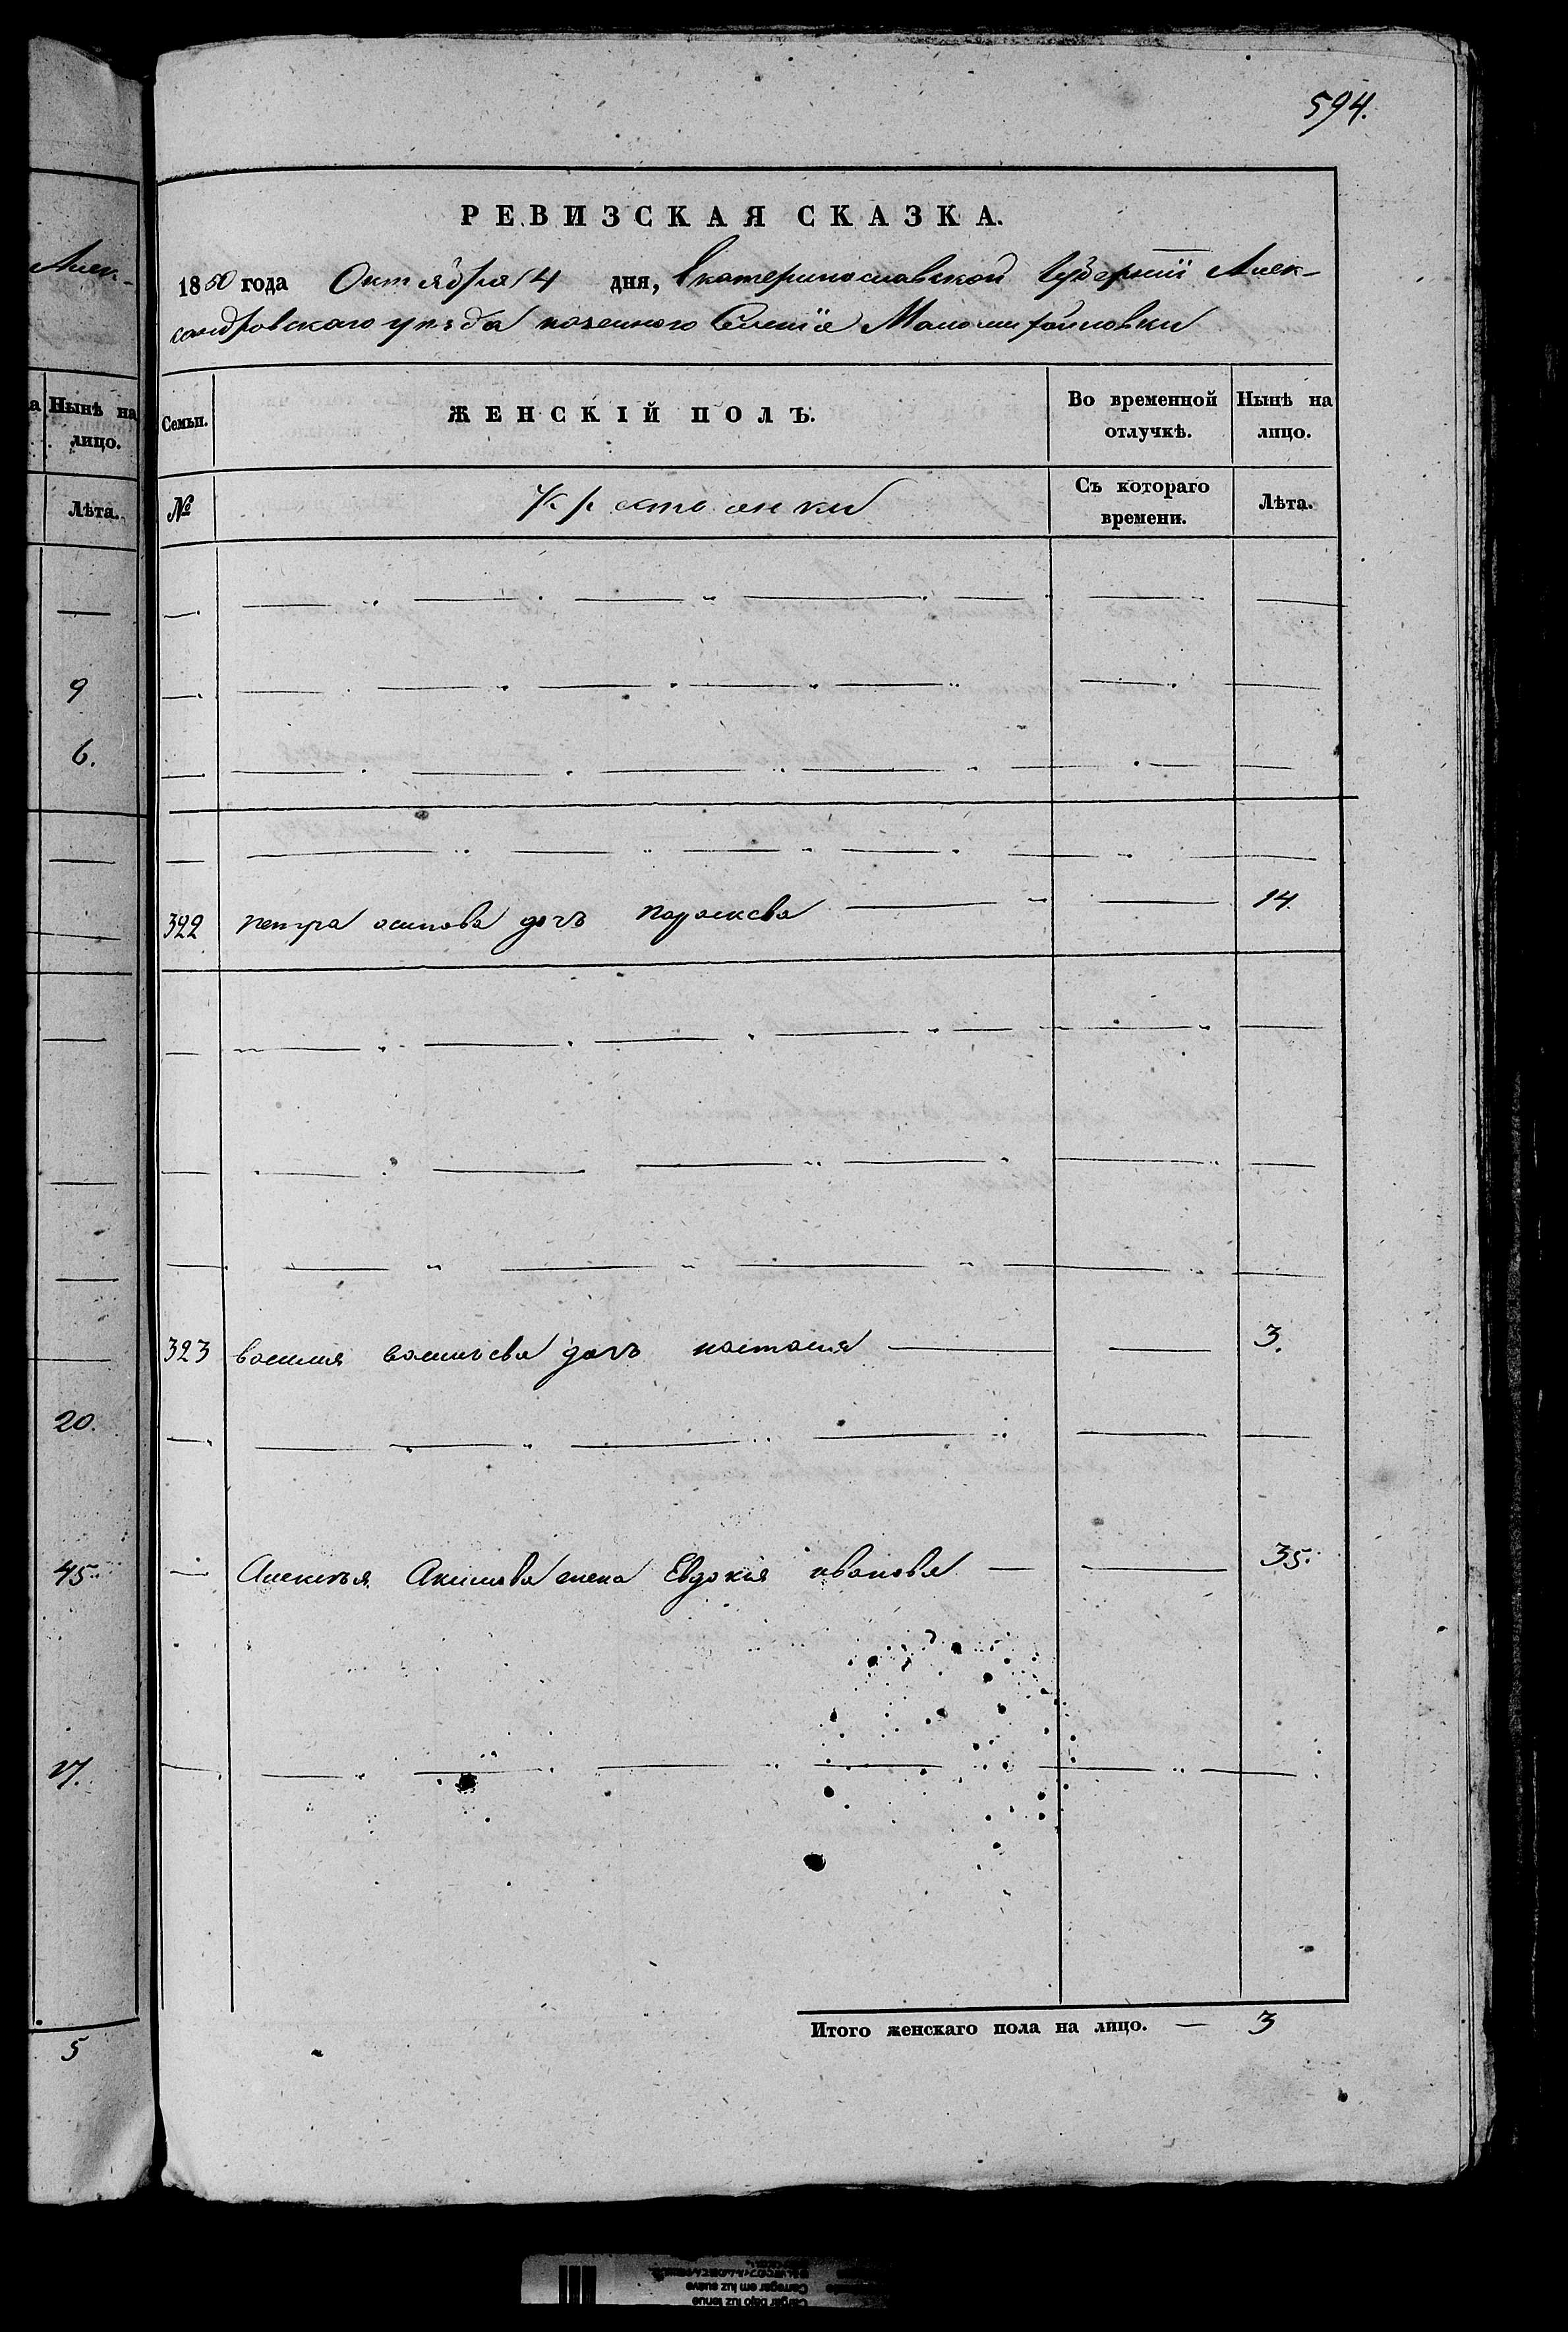 Алек-
а Нынѣ на
лицо.
Лѣта.
9
6.
20.
45.
17.
5
594.
РЕВИЗСКАЯ СКАЗКА.
1850 года Октября 4 дня, Екатеринославской Губерніи Алек-
сандровскаго уѣзда казеннаго Селенія Маломихайловки
Семьи.
ЖЕНСКІЙ ПОЛЪ.
Во временной отлучкѣ.
Нынѣ на лицо.
№
Крестьянки
Съ котораго времени.
Лѣта.
322 петра осипова дочъ параскева 14.
323 василия васильева дочъ настасия 3.
Алексѣя Акимова жена Евдокия иванова 35.
Итого женскаго пола на лицо. — 3